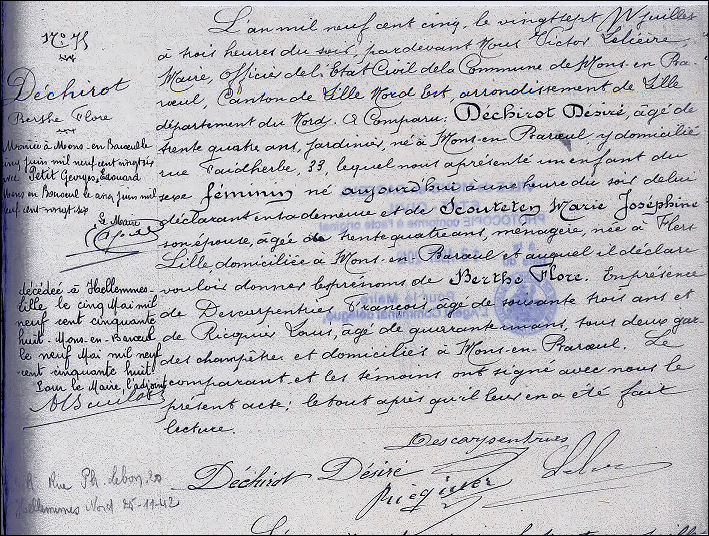 N° 75
Déchirot
Berthe Flore
Mariée à Mons-en-Barœul le
cinq juin mil neuf cent vingt six
avec Petit Georges, Edouard
Mons en Barœul le cinq juin mil
neuf cent vingt six
Le Maire
décédée à Hellemmes-
Lille le cinq Mai mil
neuf cent cinquante
huit. Mons-en-Barœul
le neuf Mai mil neuf
cent cinquante huit
Pour le Maire, l'adjoint
R. Rue Ph. Lebon 20
Hellemmes Nord 25-11-42
L'an mil neuf cent cinq, le vingt sept Juillet
à trois heures du soir, pardevant Nous Victor Lelièvre,
Maire, Officier de l'Etat Civil de la Commune de Mons-en-Ba-
rœul, Canton de Lille Nord Est, arrondissement de Lille
département du Nord. A Comparu: Déchirot Désiré, âgé de
trente quatre ans, jardinier, né à Mons-en-Barœul, y domicilié
rue Faidherbe, 33, lequel nous a présenté un enfant du
sexe féminin né aujourd'hui à une heure du soir de lui
déclarant en sa demeure et de Scouteten Marie Joséphine
son épouse, âgée de trente quatre ans, ménagère, née à Flers
Lille, domiciliée à Mons-en-Barœul et auquel il déclare
vouloir donner les prénoms de Berthe Flore. En présence
de Descarpentries François, âgé de soixante trois ans et
de Ricquier Louis, âgé de quarante un ans, tous deux gar-
des champêtres et domiciliés à Mons-en-Barœul. Le
comparant et les témoins ont signé avec nous le
présent acte; le tout après qu'il leur en a été fait
lecture.
Descarpentries
Déchirot Désiré Ricquier